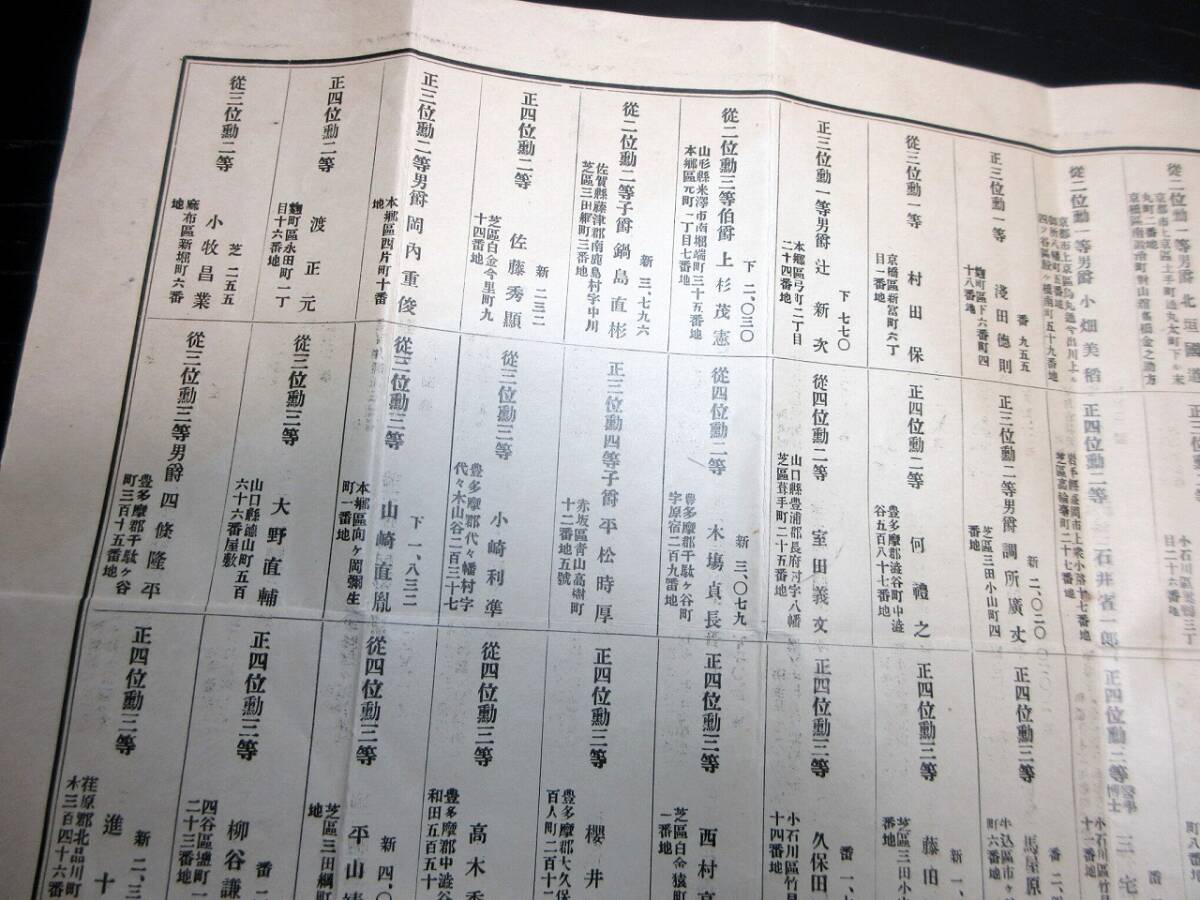 從二位勳一等男爵 北垣國道
從二位勳一等男爵 小畑美稻
正三位勳一等 淺田德則
番 九五五
麴町區下六番町四
十八番地
從三位勳一等 村田保
京橋區新富町六丁
目一番地
正三位勳一等男爵 辻新次
下 七七〇
本鄕區弓町二丁目
二十四番地
從二位勳三等伯爵 上杉茂憲
下 二、〇三〇
山形縣米澤市南堀端町三十五番地
本鄕區元町一丁目七番地
從二位勳二等子爵 鍋島直彬
新 三、七九六
佐賀縣藤津郡南鹿島村字中川
芝區三田綱町三番地
正四位勳二等 佐藤秀顯
新 二三二
芝區白金今里町九
十四番地
正三位勳二等男爵 岡內重俊
本鄕區西片町十番
地
正四位勳二等 渡正元
麴町區永田町一丁
目十六番地
從三位勳二等 小牧昌業
芝 二五五
麻布區新堀町六番
地
正四位勳二等 石井省一郎
正三位勳二等男爵 調所廣丈
新 二、〇二〇
芝區三田小山町四
番地
正四位勳二等 何禮之
豊多摩郡澁谷町中澁
谷五百八十七番地
從四位勳二等 室田義文
山口縣豊浦郡長府村字八幡
芝區葺手町二十五番地
從四位勳二等 木塲貞長
新 三、〇七九
豊多摩郡千駄ヶ谷町
字原宿二百九番地
正三位勳四等子爵 平松時厚
赤坂區靑山高樹町
十二番地五號
從三位勳三等 小崎利準
豊多摩郡代々幡村字
代々木山谷二百三十七
從三位勳三等 山崎直胤
下 一、八三二
本鄕區向ヶ岡彌生
町一番地
從三位勳三等 大野直輔
山口縣德山町五百
六十六番屋敷
從三位勳三等男爵 四條隆平
豊多摩郡千駄ヶ谷
町三百十五番地
正四位勳三等 三宅
正四位勳三等 馬屋原
正四位勳三等 藤田
新 一、
芝區三田小
番地
正四位勳三等 久保田
番 一、
小石川區竹早
十四番地
正四位勳三等 西村
芝區白金猿町
一番地
正四位勳三等 櫻井
豊多摩郡大久保
百人町二百十二
從四位勳三等 高木
豊多摩郡中澁谷
和田五百五十
從四位勳三等 平山
新 四、〇
芝區三田綱町
地
正四位勳三等 柳谷謙
番 二
四谷區鹽町一
二十三番地
正四位勳三等 進十
新 二、三
荏原郡北品川町
木三百四十六番